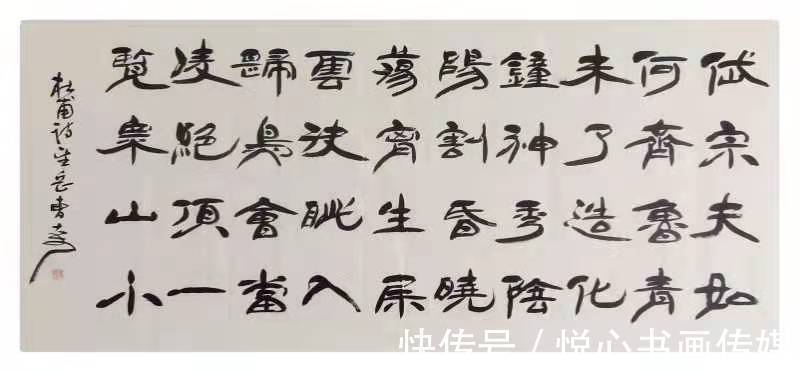 岱宗夫如
何齊魯青
未了造化
鐘神秀陰
陽割昏曉
蕩胷生层
雲決眦入
歸鳥會當
凌絕頂一
覽眾山小
杜甫诗望岳
快传号 / 悦心书画传媒